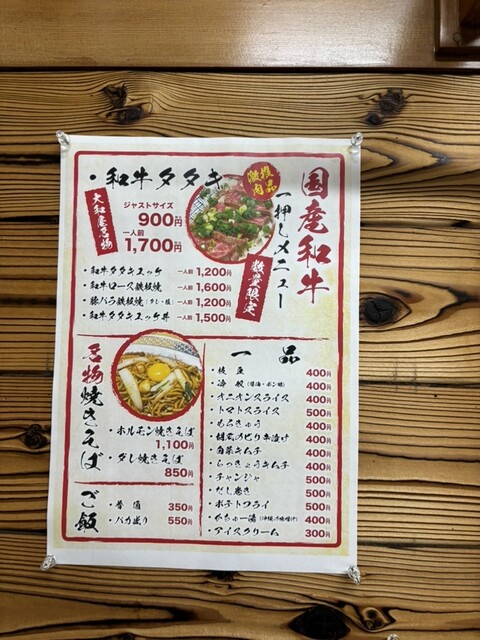 国産和牛
一押しメニュー
数量限定
・和牛タタキ
大和屋名物
ジャストサイズ
900円
一人前
1,700円
・和牛タタキユッケ 一人前 1,200円
・和牛ロース鉄板焼 一人前 1,600円
・豚バラ鉄板焼(タレ・塩) 一人前 1,200円
・和牛タタキユッケ丼 一人前 1,500円
名物焼きそば
・ホルモン焼きそば
1,100円
・ダシ焼きそば
850円
ご飯
・普通 350円
・バカ盛り 550円
一品
・枝豆 400円
・冷奴(醤油・ポン酢) 400円
・オニオンスライス 400円
・トマトスライス 500円
・もろきゅう 400円
・胡瓜一本漬け 400円
・白菜キムチ 400円
・らっきょうキムチ 400円
・チャンジャ 500円
・だし巻き 500円
・ポテトフライ 500円
・400円
・アイスクリーム 300円